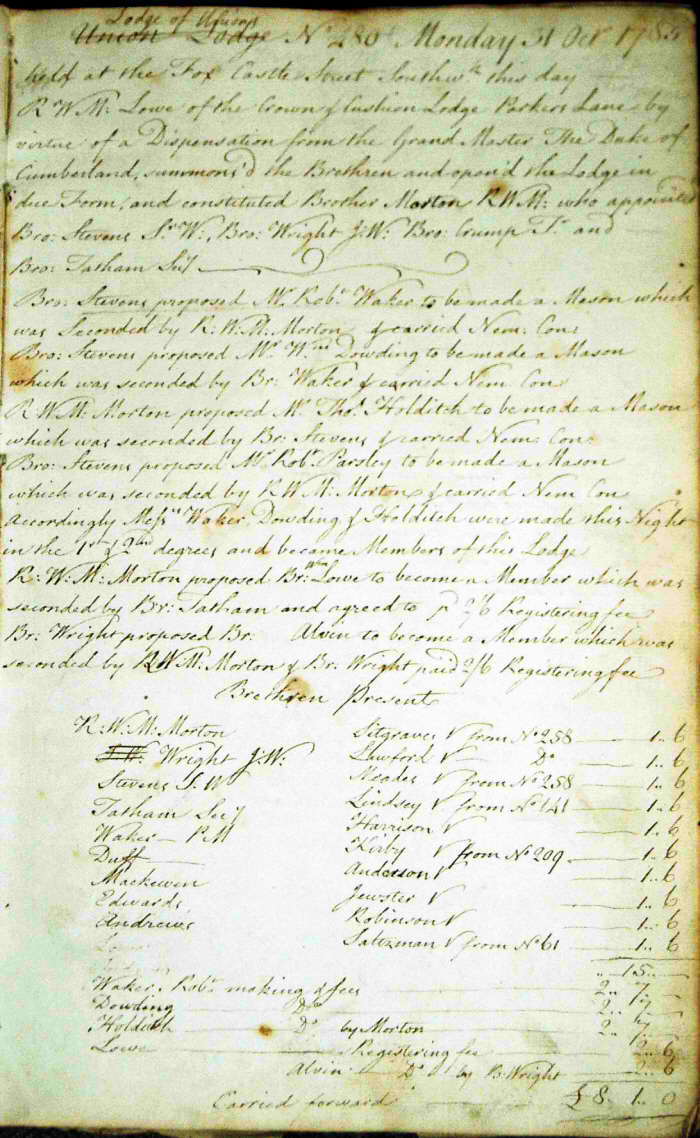 Lodge of Unions
Union Lodge No. 280 Monday 31 Oct 1785
held at the Fox Castle Street Southwk this day
R W M: Lowe of the Crown & Cushion Lodge Parkers Lane by
virtue of a Dispensation from the Grand Master The Duke of
Cumberland, summon'd the Brethren and open'd the Lodge in
due Form, and constituted Brother Morton R.W.M: who appointed
Bro: Stevens Sr W:, Bro: Wright J:W: Bro: Crump Tr and
Bro: Tatham Sec'y
Bro: Stevens proposed Mr Robt Waker to be made a Mason which
was Seconded by R.W.M. Morton & carried Nem: Con:
Bro: Stevens proposed Mr Wm Dowding to be made a Mason
which was seconded by Br: Waker & carried Nem. Con
R W M: Morton proposed Mr Thos Holditch to be made a Mason
which was seconded by Br: Stevens & carried Nem: Con:
Bro: Stevens proposed Mr Robt Parsley to be made a Mason
which was seconded by R W M: Morton & carried Nem Con
Accordingly Messrs Waker, Dowding & Holditch were made this Night
in the 1st & 2nd degrees and became Members of this Lodge
R: W: M: Morton proposed Br: Lowe to become a Member which was
seconded by Br: Tatham and agreed to pd 2/6 Registering fee
Br: Wright proposed Br: Alvin to become a Member which was
seconded by R.W.M: Morton & Br: Wright paid 2/6 Registering fee
Brethren Present
R:W:M: Morton
J.W: Wright J:W:
Stevens S. W
Tatham Sec'y
Waker P M
Duff
Mackewen
Edwards
Andrews
Sitgraves V from No 258 1.. 6
Lawford V Do 1.. 6
Meades V from No 258 1.. 6
Lindsey V from No 141 1.. 6
Harrison V 1.. 6
Kirby V from No 209 1.. 6
Anderson V 1.. 6
Jewster V 1.. 6
Robinson V 1.. 6
Saltzman V from No 61 1.. 6
.. 15 ..
Waker Robt making & fees 2.. 7..
Dowding Do 2.. 7..
Holditch Do by Morton 2.. 7..
Lowe Registering fee 2.. 6
Alvin Do by B: Wright 2.. 6
Carried forward £8.. 1.. 0